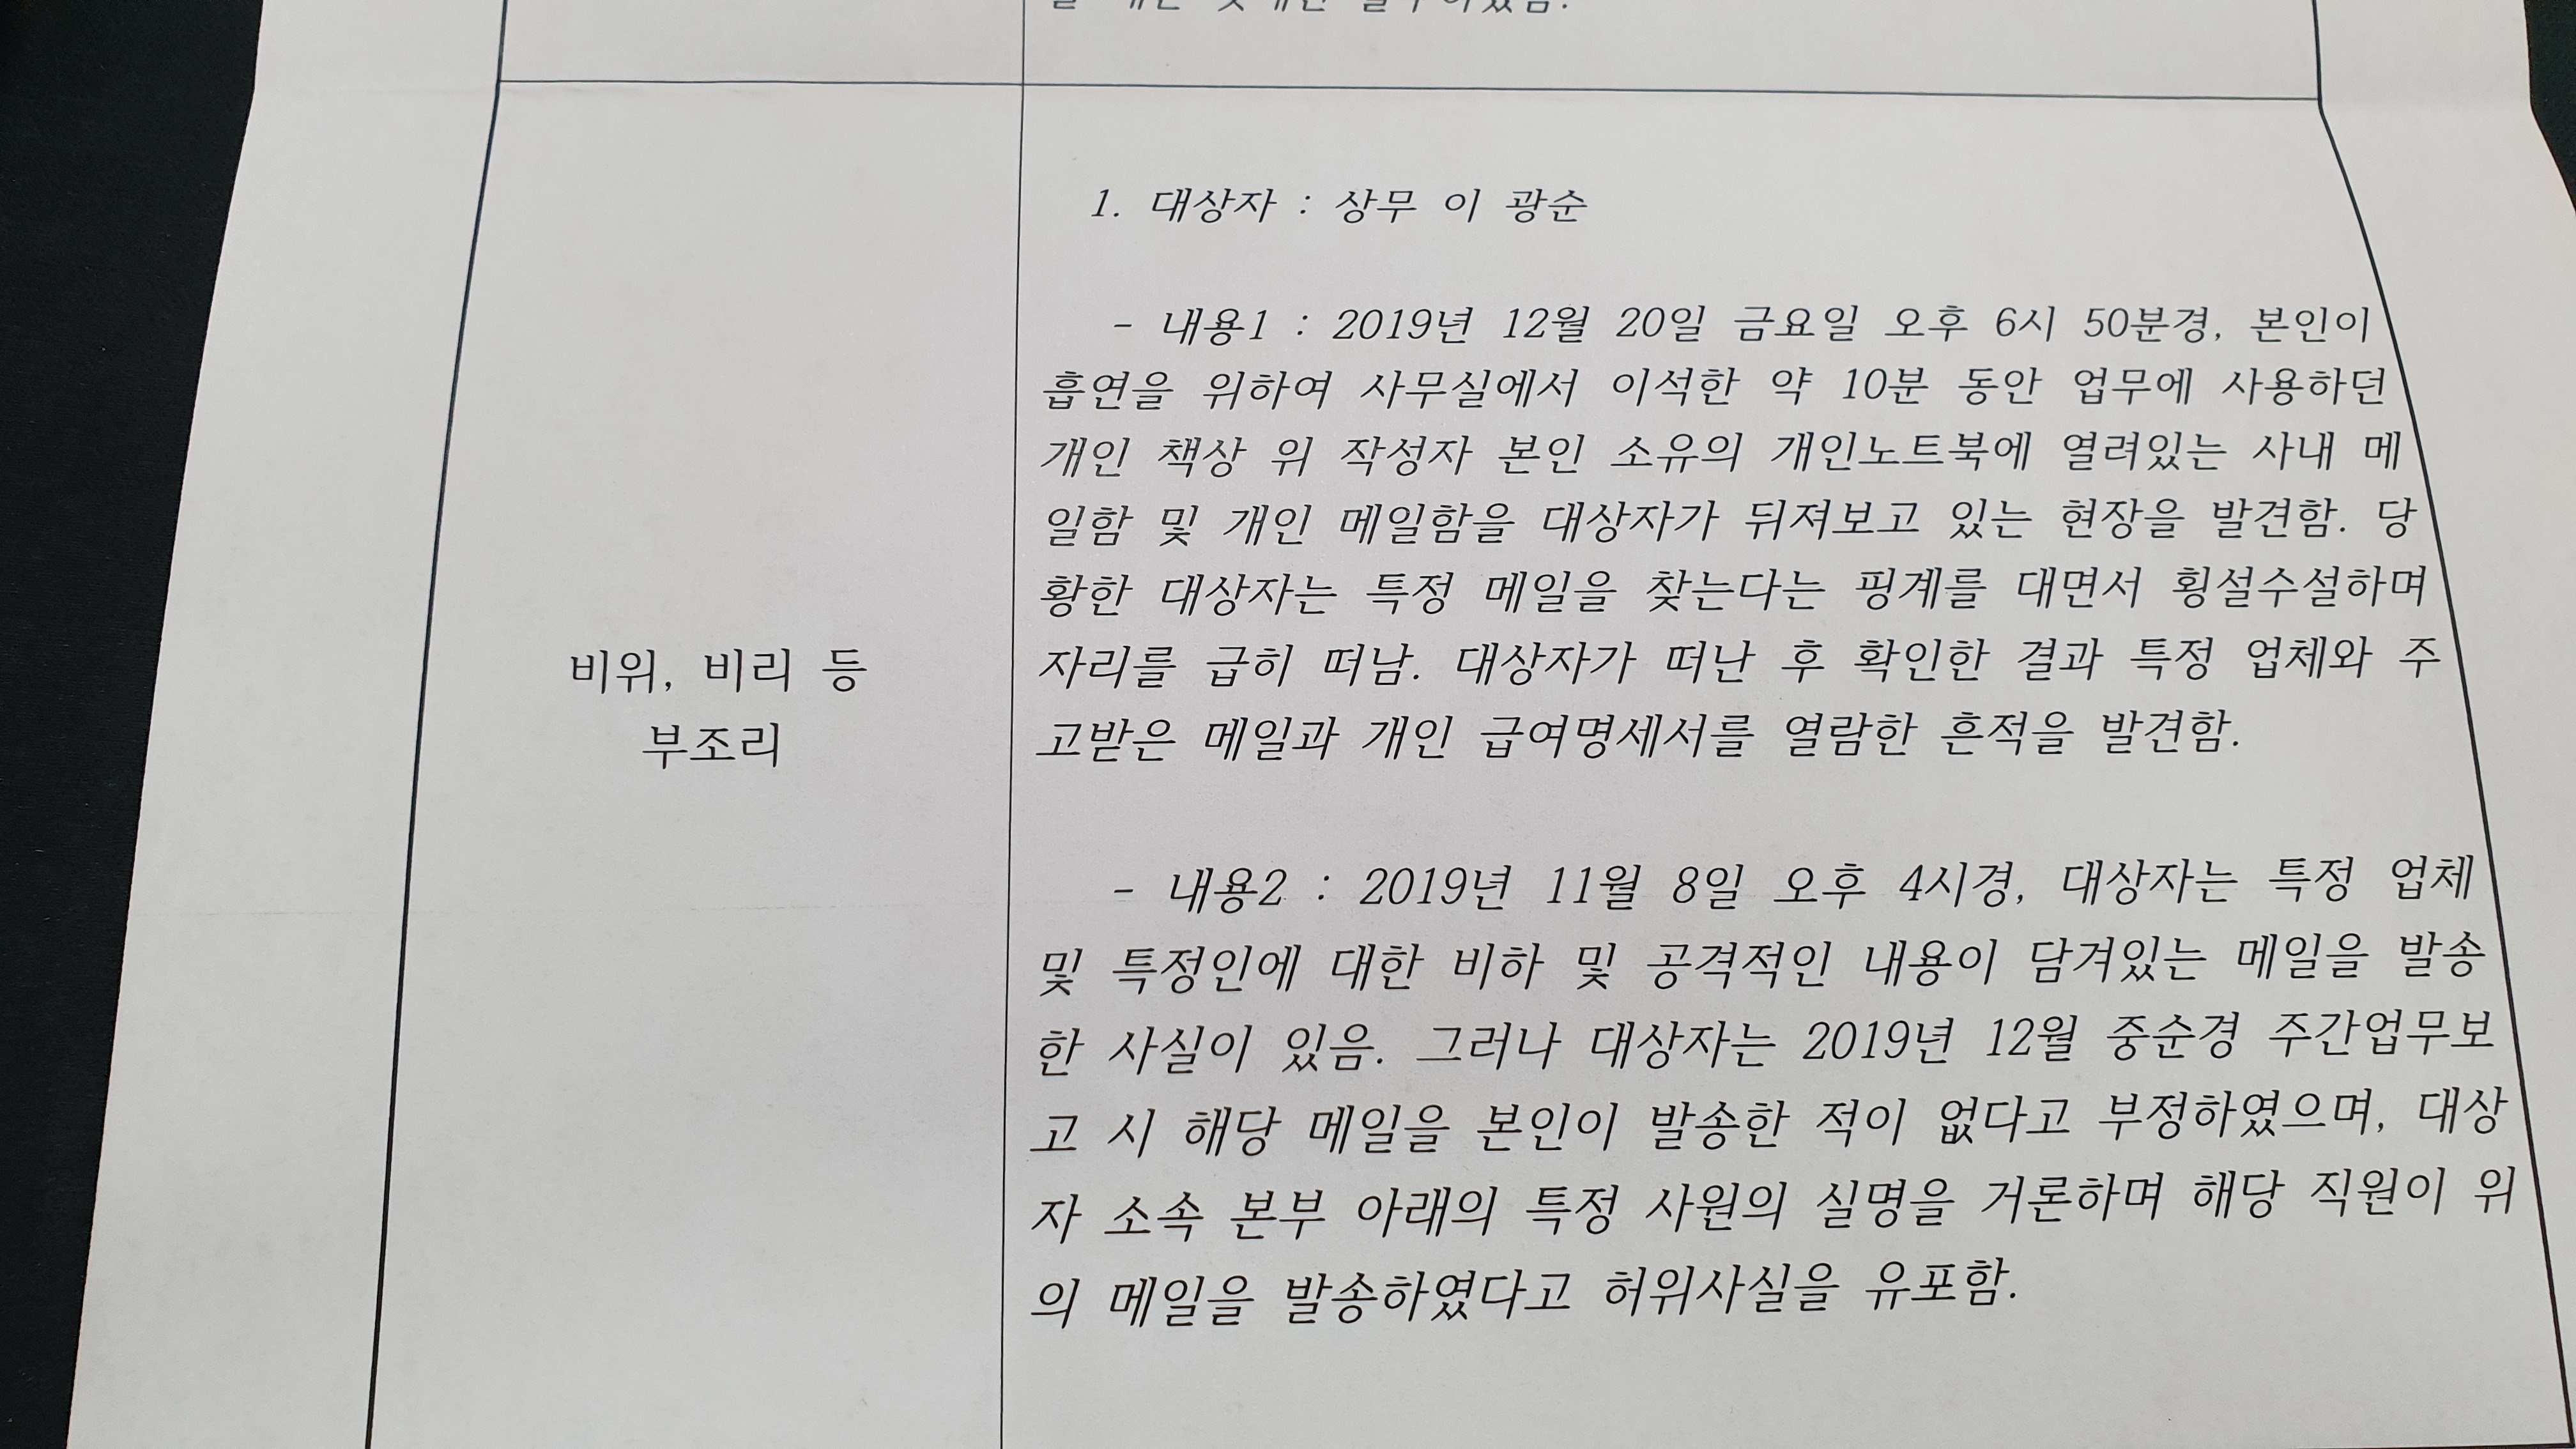 1. 대상자 : 상무 이 광순
- 내용1 : 2019년 12월 20일 금요일 오후 6시 50분경, 본인이
흡연을 위하여 사무실에서 이석한 약 10분 동안 업무에 사용하던
개인 책상 위 작성자 본인 소유의 개인노트북에 열려있는 사내 메
일함 및 개인 메일함을 대상자가 뒤져보고 있는 현장을 발견함. 당
황한 대상자는 특정 메일을 찾는다는 핑계를 대면서 횡설수설하며
자리를 급히 떠남. 대상자가 떠난 후 확인한 결과 특정 업체와 주
고받은 메일과 개인 급여명세서를 열람한 흔적을 발견함.
비위, 비리 등
부조리
- 내용2 : 2019년 11월 8일 오후 4시경, 대상자는 특정 업체
및 특정인에 대한 비하 및 공격적인 내용이 담겨있는 메일을 발송
한 사실이 있음. 그러나 대상자는 2019년 12월 중순경 주간업무보
고 시 해당 메일을 본인이 발송한 적이 없다고 부정하였으며, 대상
자 소속 본부 아래의 특정 사원의 실명을 거론하며 해당 직원이 위
의 메일을 발송하였다고 허위사실을 유포함.